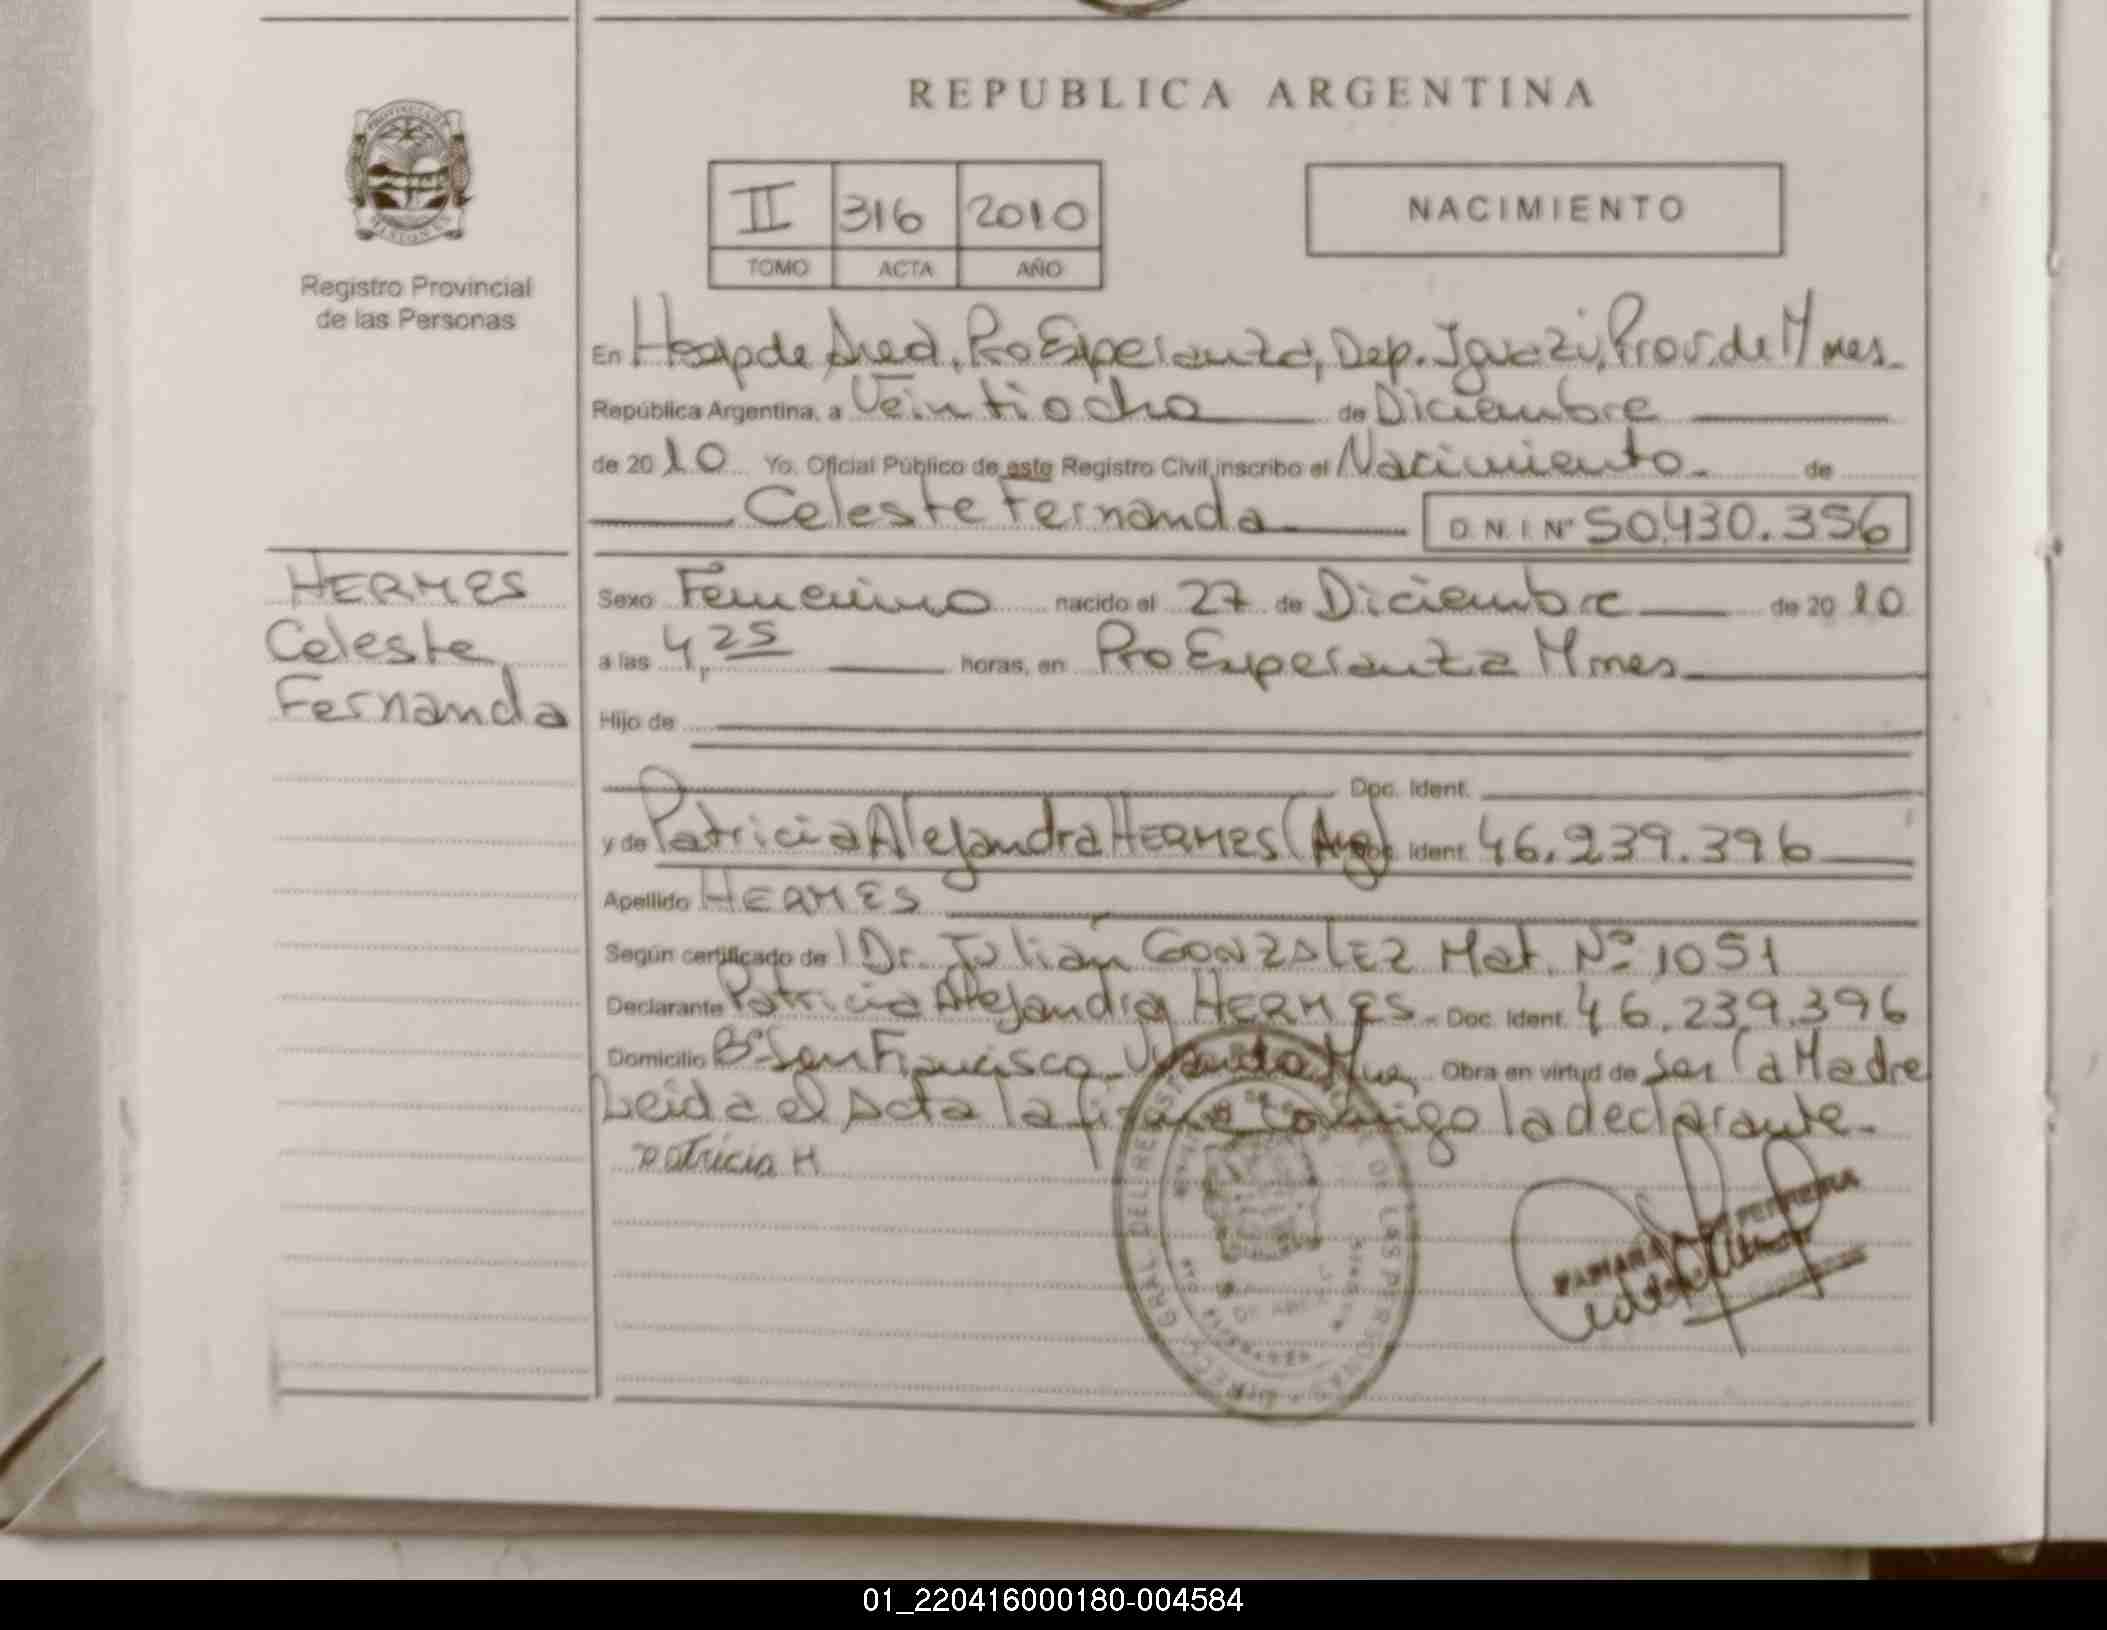 REPUBLICA ARGENTINA
II 316 2010
TOMO ACTA AÑO
NACIMIENTO
Registro Provincial
de las Personas
En Hosp de Area, Pto Esperanza, Dep. Iguazú, Prov. de Mnes.
República Argentina, a Veintiocho de Diciembre
de 2010 Yo, Oficial Público de este Registro Civil inscribo el Nacimiento de
Celeste Fernanda D.N.I. Nº 50.430.356
HERMES
Celeste
Fernanda
Sexo Femenino nacido el 27 de Diciembre de 2010
a las 4,25 horas, en Pto Esperanza Mnes
Hijo de
Doc. Ident.
y de Patricia Alejandra HERMES (Arg) Doc. Ident. 46.239.396
Apellido HERMES
Según certificado de Dr. Julián GONZALEZ Mat. Nº 1051
Declarante Patricia Alejandra HERMES Doc. Ident. 46.239.396
Domicilio Bº San Francisco Obra en virtud de ser la Madre
Leida el Acta la firma conmigo la declarante.
Patricia H
DE LAS PERSONAS
01_220416000180-004584